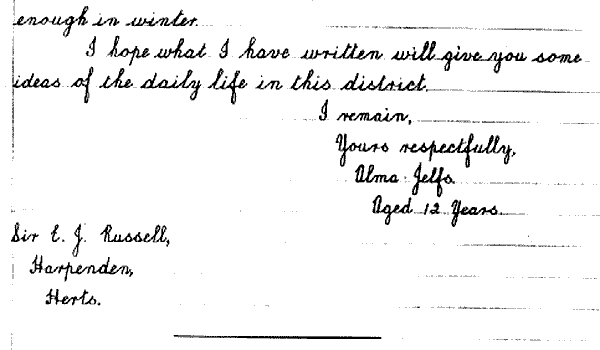 enough in winter.
I hope what I have written will give you some
ideas of the daily life in this district.
I remain,
Yours respectfully,
Alma Jelfs.
Aged 12 Years.
Sir E. J. Russell,
Harpenden,
Herts.